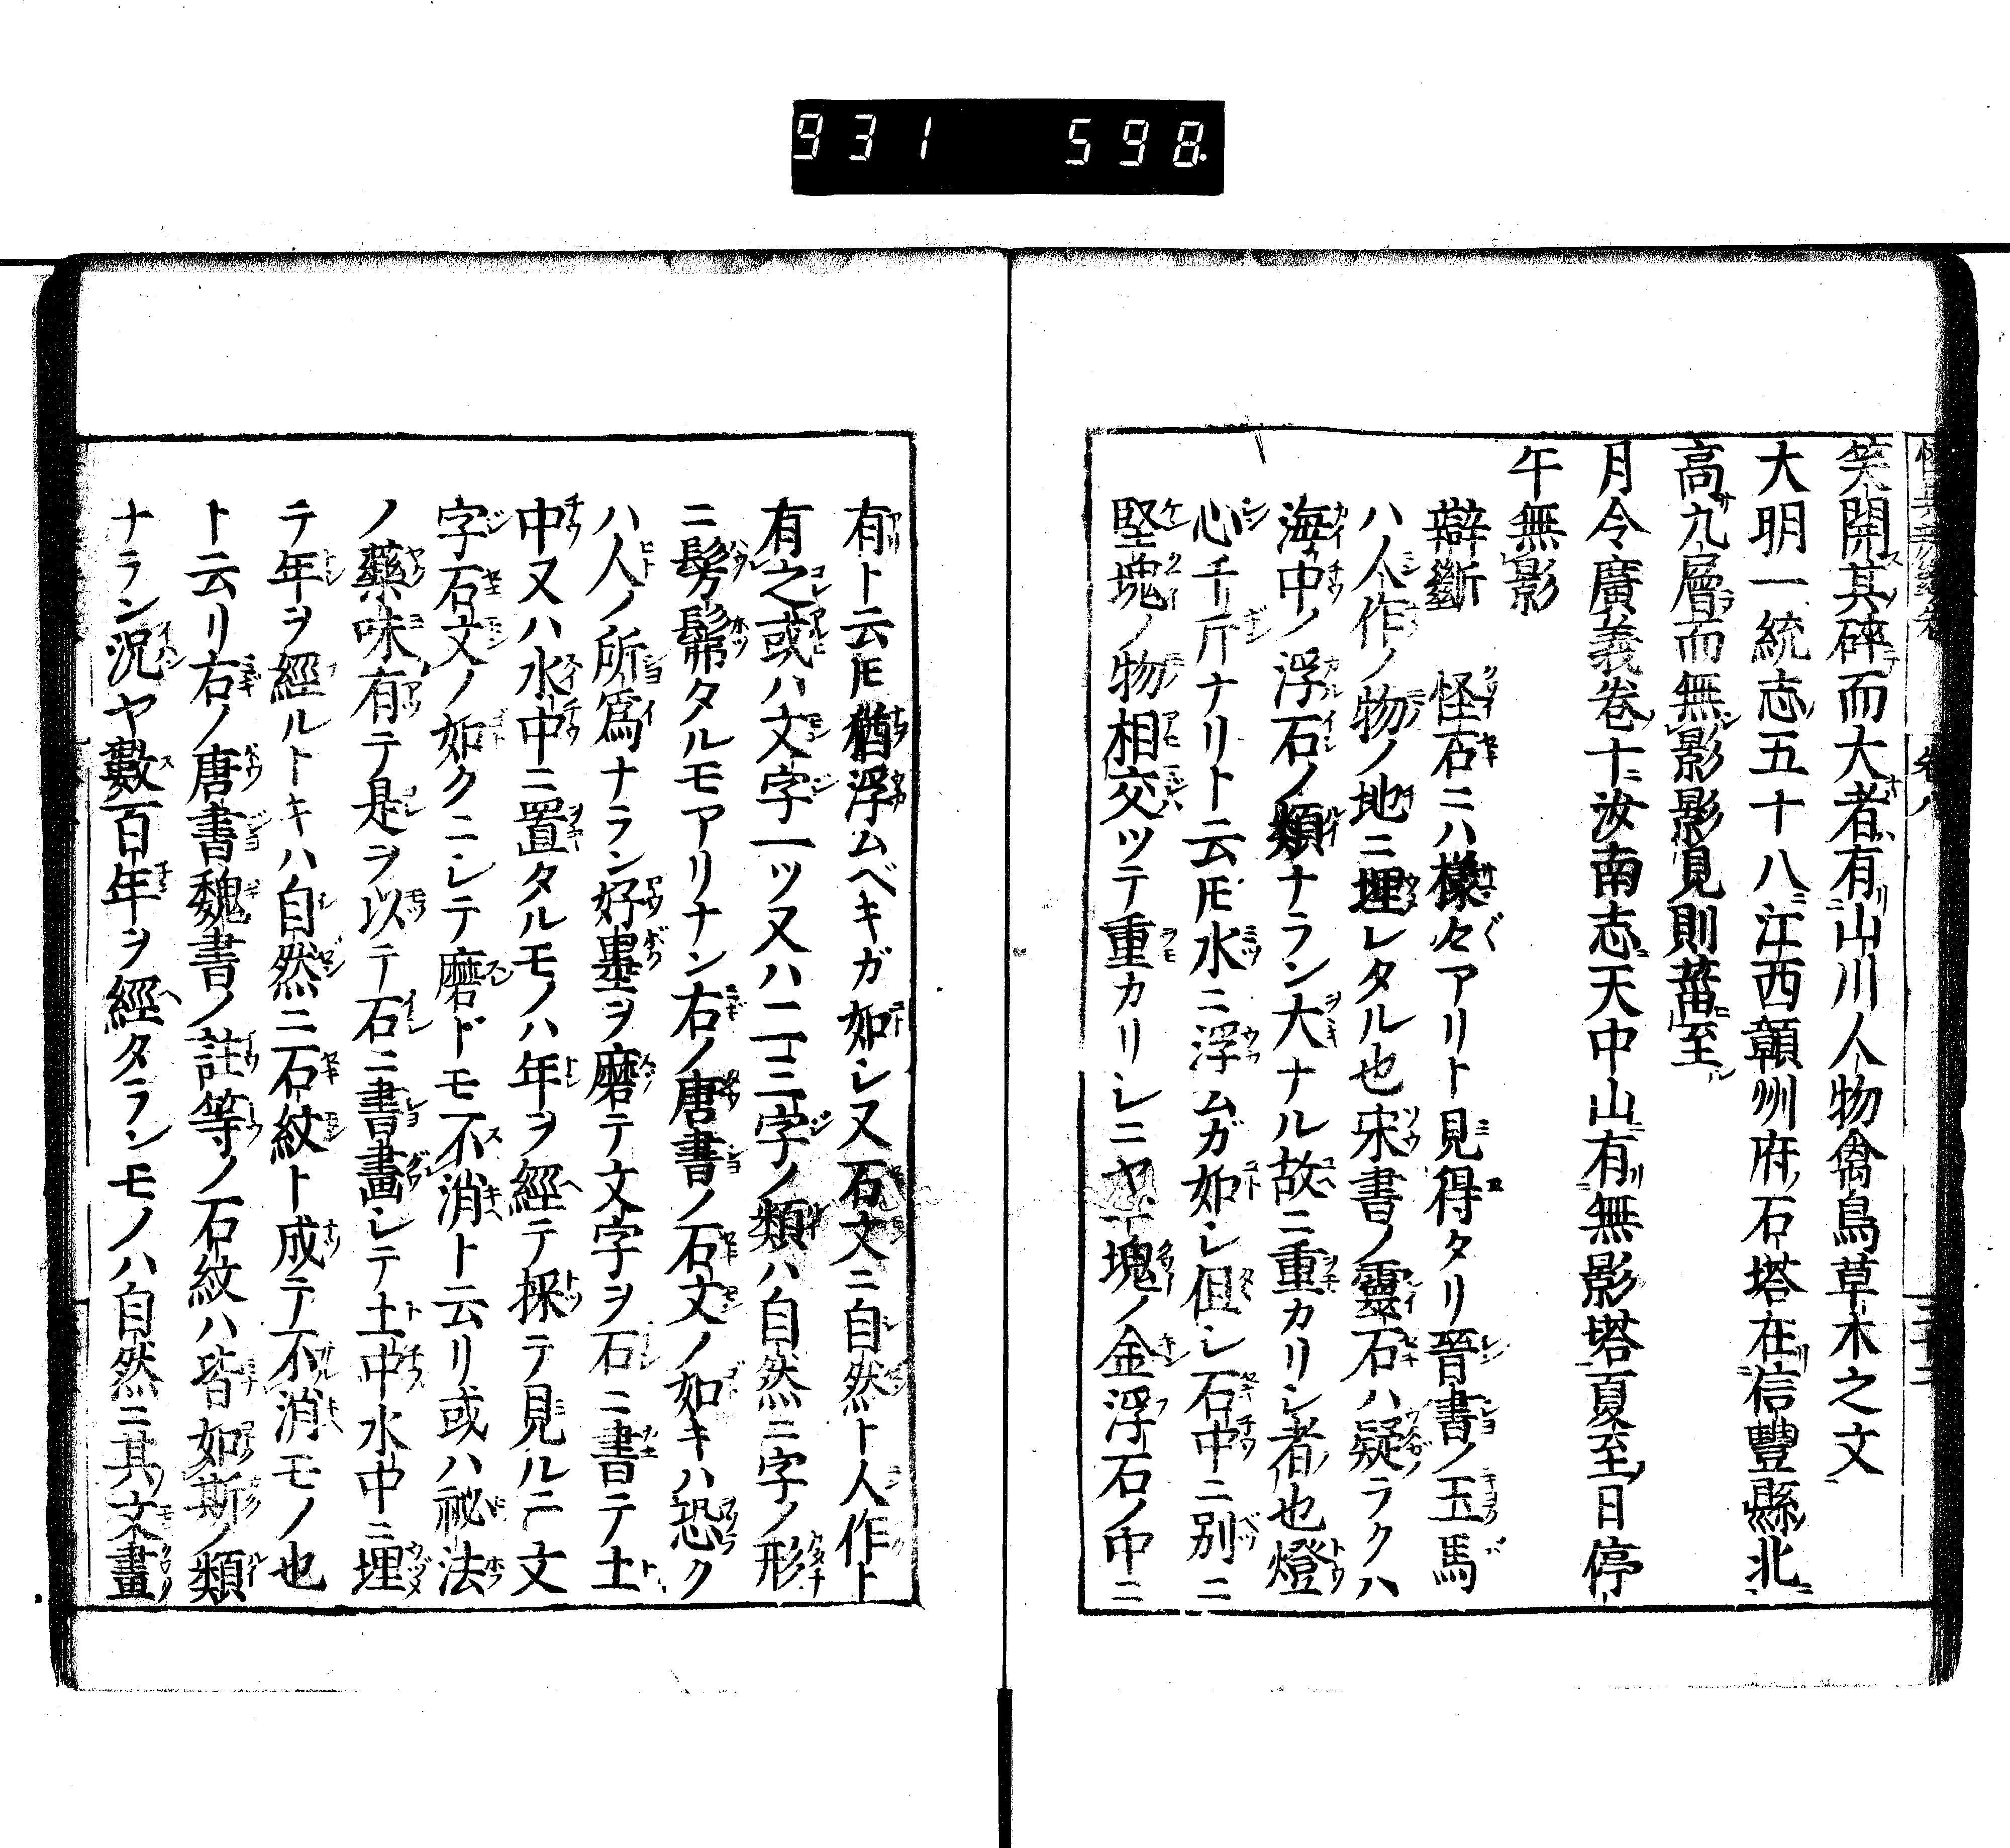 931 598.
笑開其碎而大者有山川人物禽鳥草木之文
大明一統志五十八江西贛州府石塔在信豐縣北
高九層而無影影見則蕃至
月令廣義卷十汝南志天中山有無影塔夏至日停
午無影
辯斷 怪石ニハ様々アリト見得タリ晉書ノ玉馬
ハ人作ノ物ノ地ニ埋レタル也宋書ノ靈石ハ疑ラクハ
海中ノ浮石ノ類ナラン大ナル故ニ重カリシ者也燈
心千斤ナリト云𪜈水ニ浮ムガ如シ但シ石中ニ別ニ
堅塊ノ物相交ツテ重カリシニヤ一塊ノ金浮石ノ中ニ
有ト云𪜈猶浮ムベキガ如シ又石文ニ自然ト人作ト
有之或ハ文字一ツ又ハ二三字ノ類ハ自然ニ字ノ形
ニ髣髴タルモアリナン右ノ唐書ノ石文ノ如キハ恐ク
ハ人ノ所爲ナラン好墨ヲ磨テ文字ヲ石ニ書テ土
中又ハ水中ニ置タルモノハ年ヲ經テ採テ見ルニ文
字石文ノ如クニシテ磨ドモ不消ト云リ或ハ祕法
ノ藥味有テ是ヲ以テ石ニ書畫シテ土中水中ニ埋
テ年ヲ經ルトキハ自然ニ石紋ト成テ不消モノ也
ト云リ右ノ唐書魏書ノ註等ノ石紋ハ皆如斯ノ類
ナラン況ヤ數百年ヲ經タランモノハ自然ニ其文畫